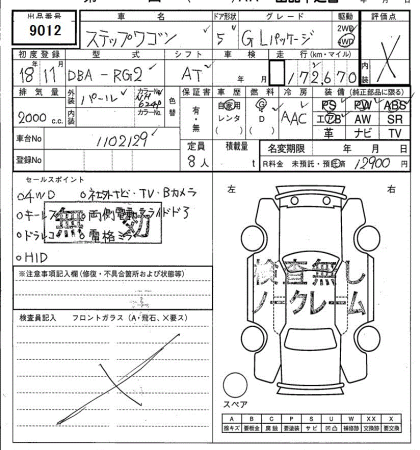 出品番号 車名 ドア形状 グレード 駆動 評価点
9012 ステップワゴン 5 G Lパッケージ 2WD 4WD X
初度登録 型式 シフト 車検 走行(km・マイル) 内装
18年11月 DBA-RG2 AT 年 月 172,670
排気量 外装 パール カラーNo. 色替 保証書 車歴 燃料 冷房 装備(純正部品に限る)
2000 c.c. 内装 カラーNo. 有・無 自家用 レンタ G D AAC PS PW ABS
エアB AW SR
革 ナビ TV
車台No 1102129
登録No 定員 8人 積載量 t 名変期限 年 月 日
R料金 未預託・預託済 12900
セールスポイント 左 右
○4WD ○社外ナビ・TV・Bカメラ
○キーレス ○両側電動スライドドア
○ドラレコ ○電格ミラー
○HID
無効
※注意事項記入欄(修復・不具合箇所および状態等)
検査無し
ノークレーム
検査員記入 フロントガラス(A・飛石、X要ス)
スペア
A B C P S U W XX X
線キズ 要板金 腐蝕 要塗装 サビ 凹凸 補修跡 交換跡 要交換